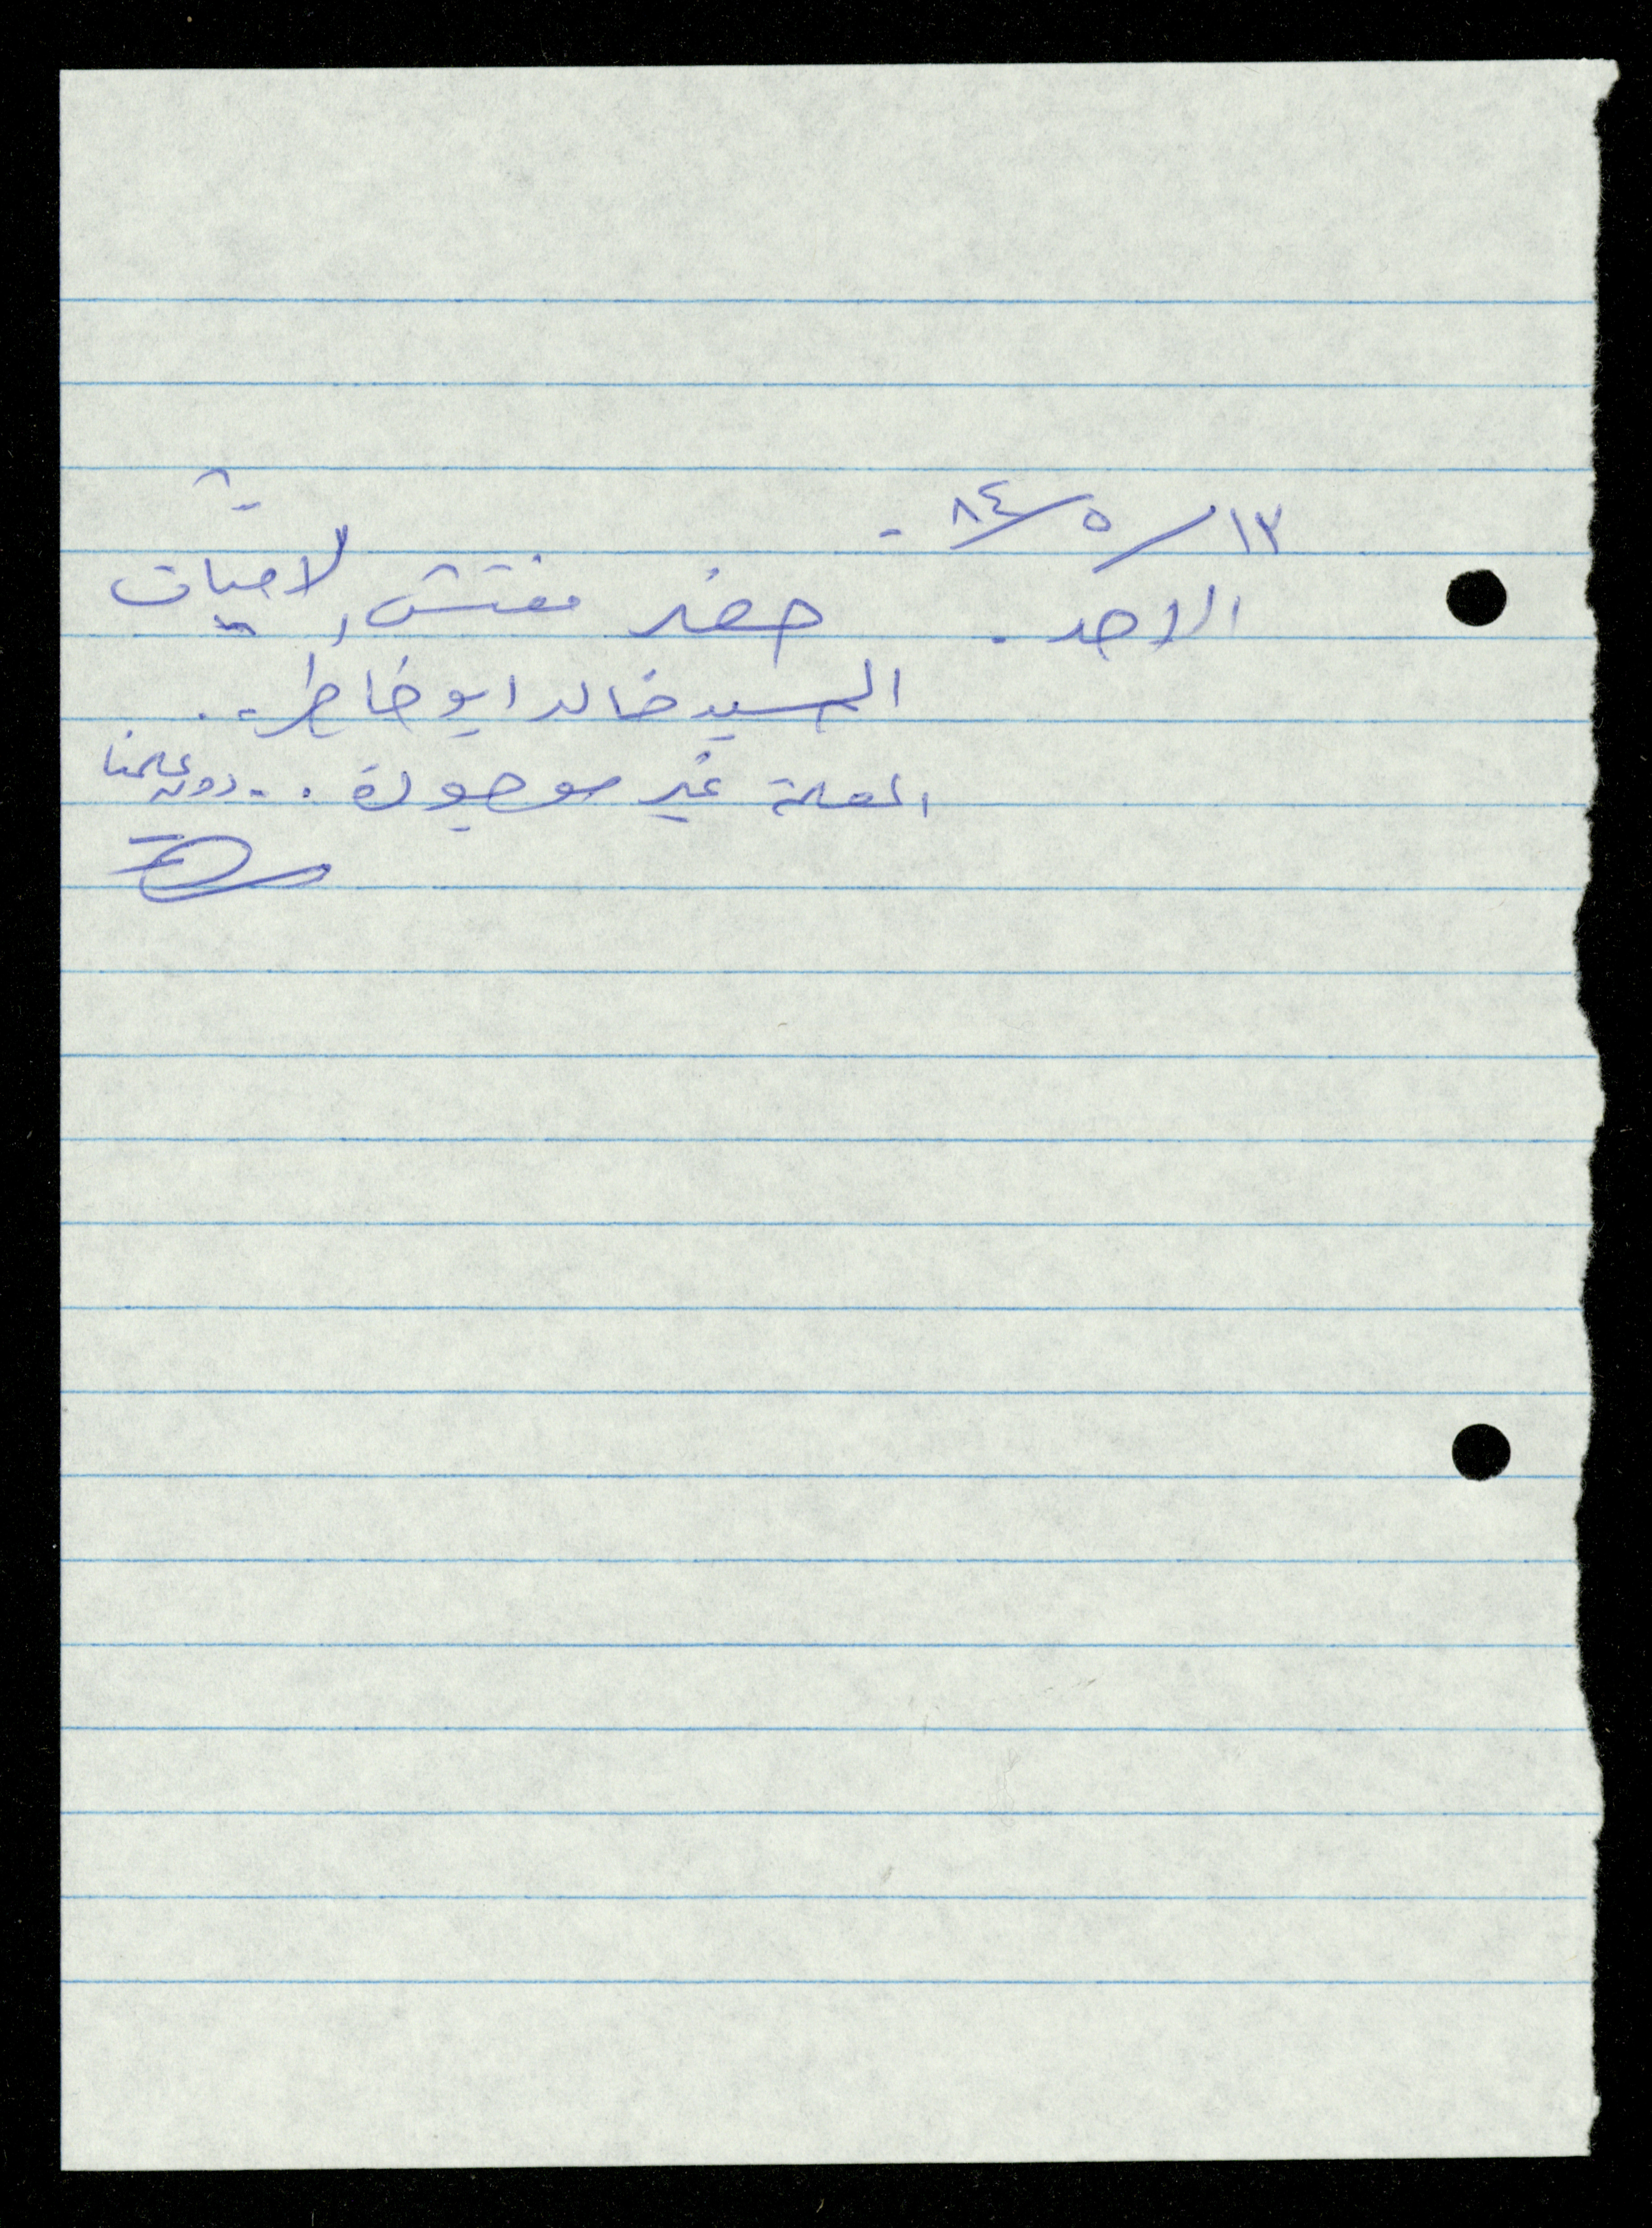 ١٣/٥/٨٤ -
الاحد . حضر مفتش الاميات
السيد خالد ابو خاطر . .
المعلمة غير موجودة . . دون علمنا